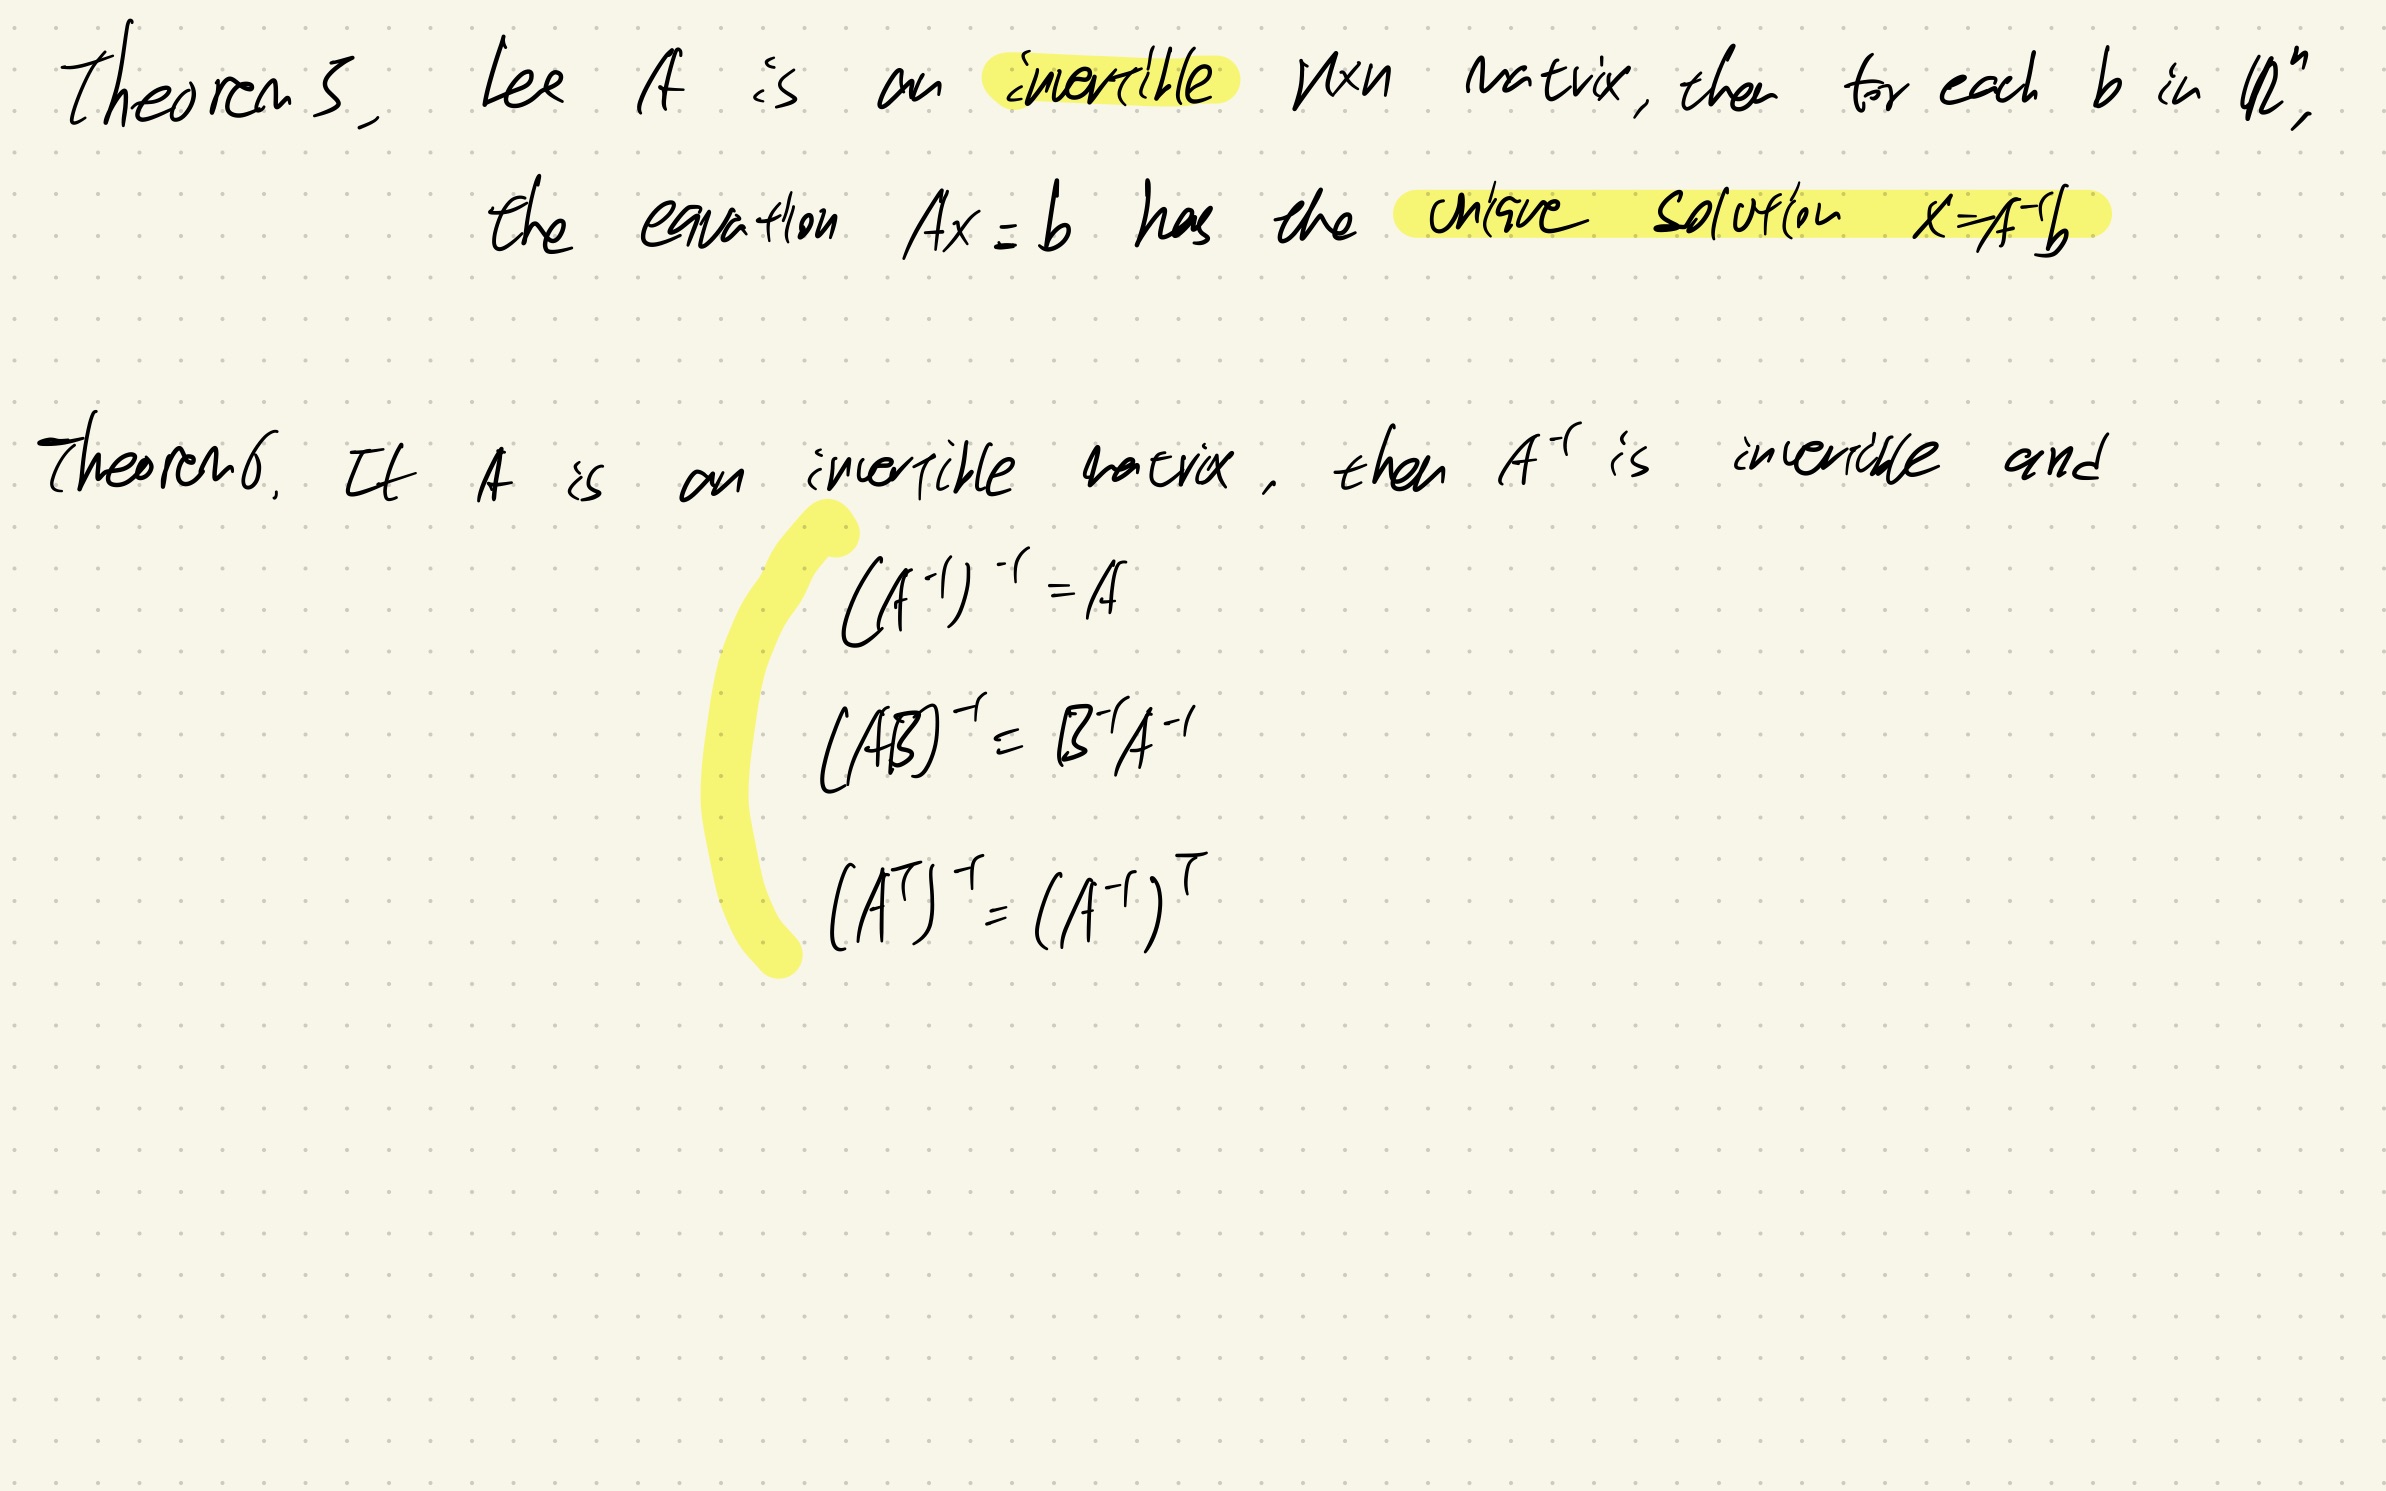 Theorem 5. Let A is an invertible n×n matrix, then for each b in ℝⁿ,
the equation Ax = b has the unique solution x = A⁻¹b
Theorem 6. If A is an invertible matrix, then A⁻¹ is invertible and
(A⁻¹)⁻¹ = A
(AB)⁻¹ = B⁻¹A⁻¹
(Aᵀ)⁻¹ = (A⁻¹)ᵀ